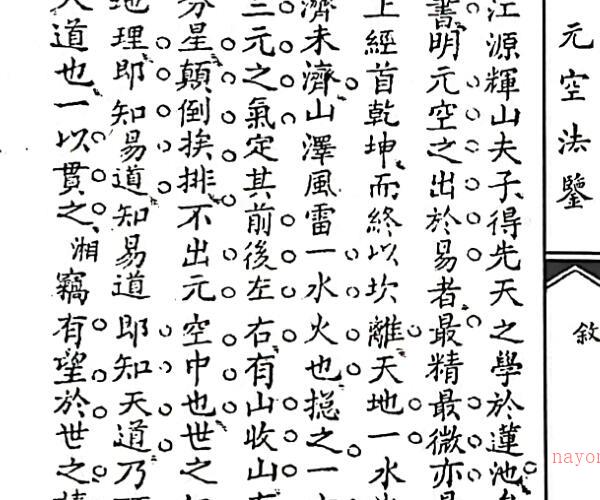 元空法鑒
敘
江源輝山夫子得先天之學於蓮池
書明元空之出於易者最精最微亦
上經首乾坤而終以坎離天地一水
濟未濟山澤風雷一水火也總之一
三元之氣定其前後左右有山收山
分星顛倒挨排不出元空中也世之
地理即知易道知易道即知天道乃
道也一以貫之湘竊有望於世之
nayon